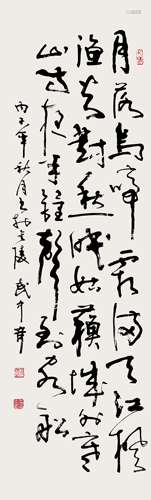 月落烏啼霜滿天江楓
漁火對愁眠姑蘇城外寒
山寺夜半鐘聲到客船
丙子年秋月於金陵 武中奇